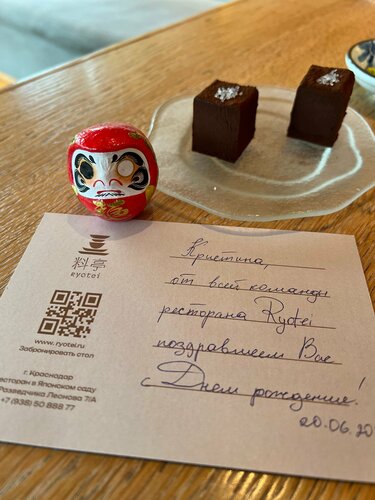 福
料亭
RYOTEI
www.ryotei.ru
Забронировать стол
г. Краснодар
ресторан в Японском саду
Разведчика Леонова 7/А
+7 (938) 50 888 77
Кристина,
от всей команды
ресторана Ryotei
поздравляем Вас
с Днем рождения!
20.06.20